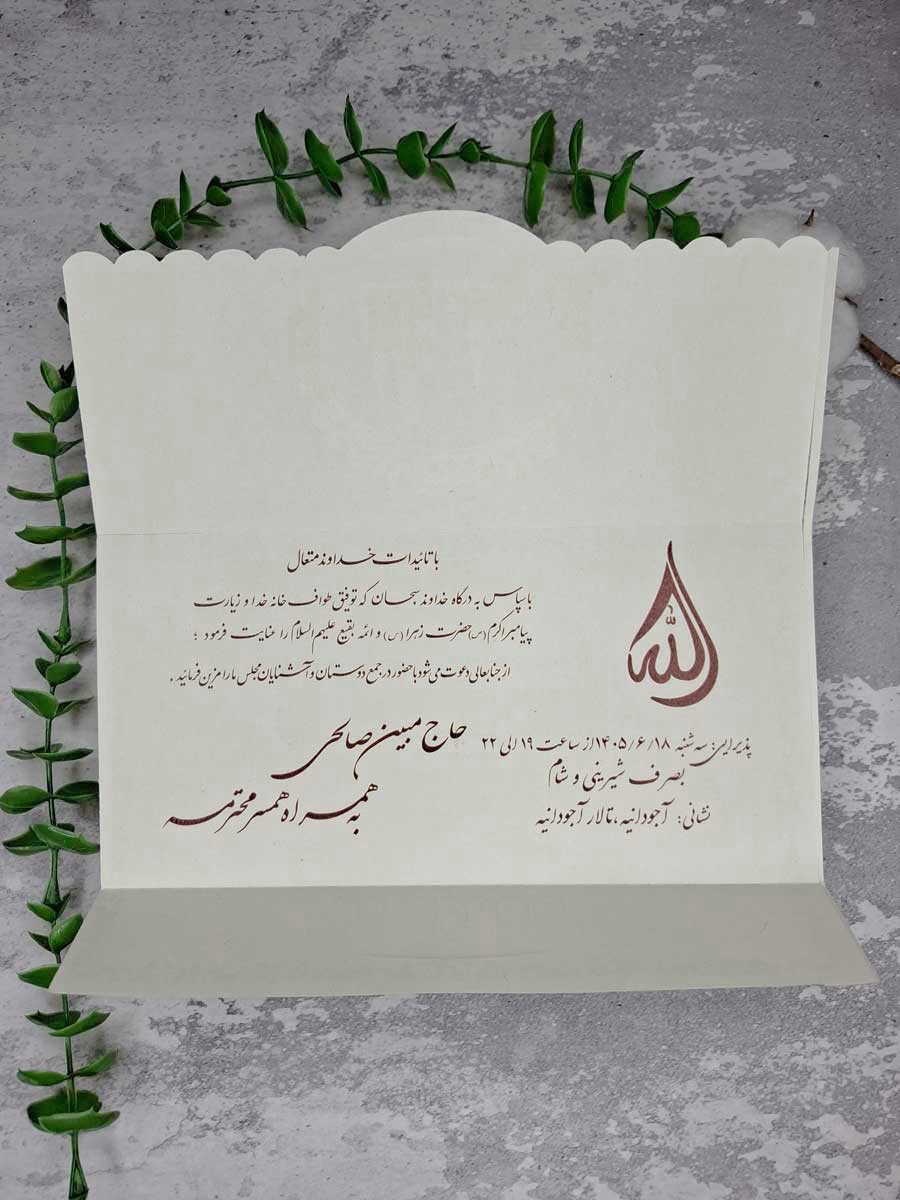 با تائیدات خداوند متعال
با سپاس به درگاه خداوند سبحان که توفیق طواف خانه خدا و زیارت
پیامبر اکرم (ص) حضرت زهرا (س) و ائمه بقیع علیهم السلام را عنایت فرمود ؛
از جنابعالی دعوت می شود با حضور در جمع دوستان و آشنایان مجلس ما را مزین فرمائید .
حاج مبین صالحی
به همراه همسر محترمه
الله
پذیرایی: سه شنبه ۱۴۰۵/۶/۱۸ از ساعت ۱۹ الی ۲۲
بصرف شیرینی و شام
نشانی: آجودانیه ، تالار آجودانیه